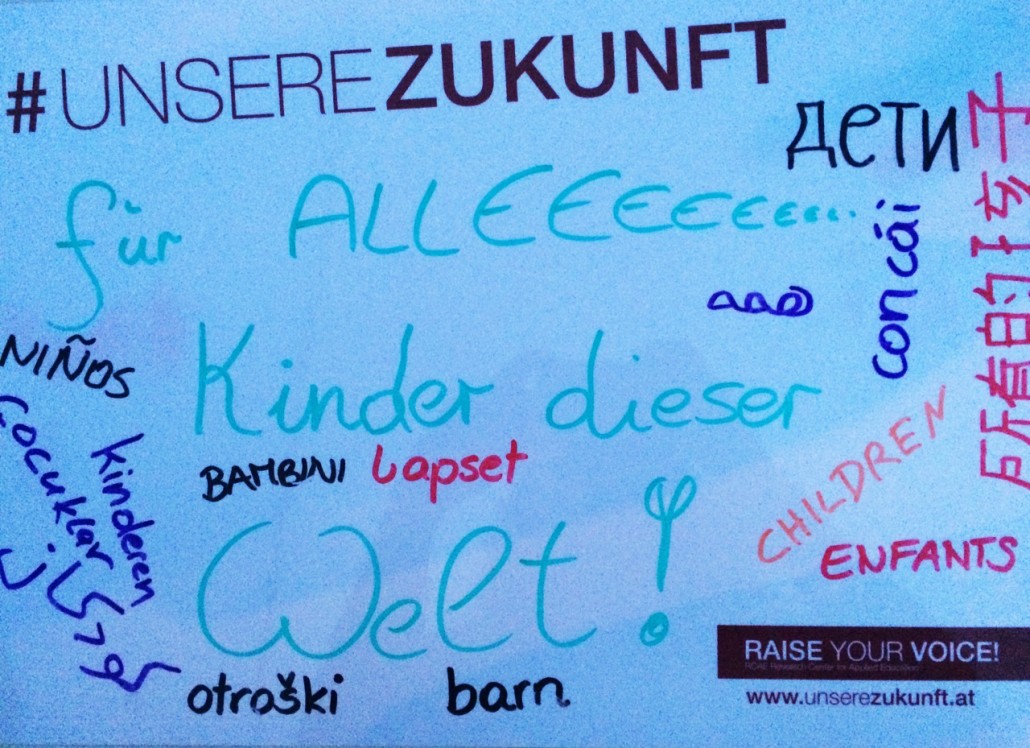 #UNSEREZUKUNFT
für ALLEEEEEEEE...
ДеТИ
con cái
所有的孩子
NIÑOS
Kinder dieser
çocuklar
kinderen
BAMBINI
Lapset
CHILDREN
Welt!
ENFANTS
otroški
barn
RAISE YOUR VOICE!
www.unserezukunft.at